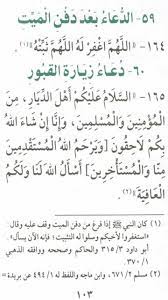 ٥٩ - الدُّعَاءُ بَعْدَ دَفْنِ الْمَيِّتِ
١٦٤ - ((اللَّهُمَّ اغْفِرْ لَهُ اللَّهُمَّ ثَبِّتْهُ))(١).
٦٠ - دُعَاءُ زِيَارَةِ الْقُبُورِ
١٦٥ - ((السَّلَامُ عَلَيْكُمْ أَهْلَ الدِّيَارِ، مِنَ
الْمُؤْمِنِينَ وَالْمُسْلِمِينَ، وَإِنَّا إِنْ شَاءَ اللَّهُ
بِكُمْ لَاحِقُونَ [وَيَرْحَمُ اللَّهُ الْمُسْتَقْدِمِينَ
مِنَّا وَالْمُسْتَأْخِرِينَ] أَسْأَلُ اللَّهَ لَنَا وَلَكُمُ
الْعَافِيَةَ))(٢).
(١) كان النبي ﷺ إذا فرغ من دفن الميت وقف عليه وقال:
((استغفروا لأخيكم وسلوا له التثبيت؛ فإنه الآن يسأل))
أبو داود ٣١٥/٣ والحاكم وصححه ووافقه الذهبي
٣٧٠/١.
(٢) مسلم ٦٧١/٢، وابن ماجه واللفظ له ٤٩٤/١ عن بريدة =
١٠٣